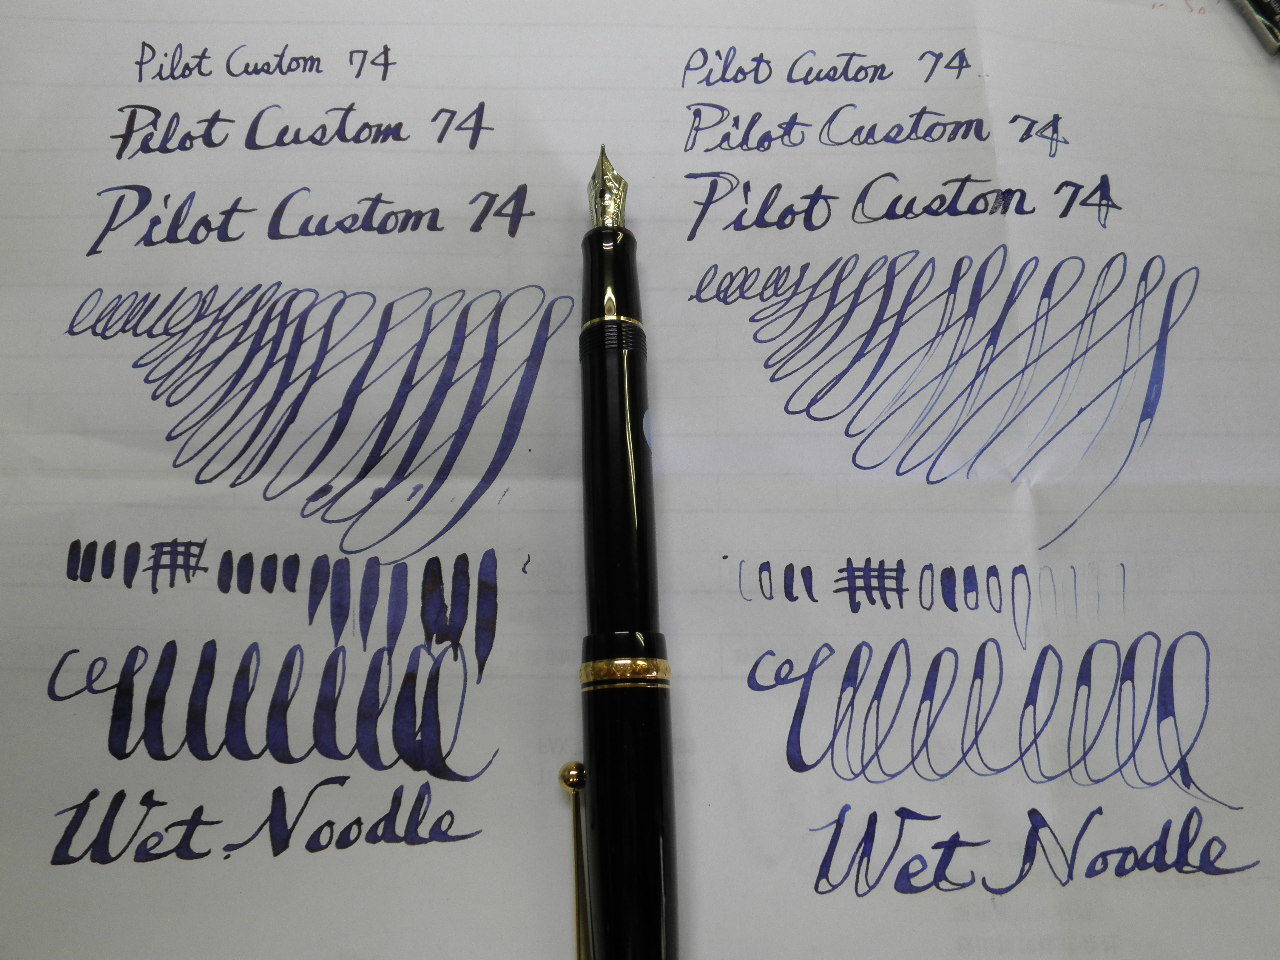 Pilot Custom 74
Pilot Custom 74
Pilot Custom 74
Wet Noodle
Pilot Custon 74
Pilot Custom 74
Pilot Custom 74
Wet Noodle